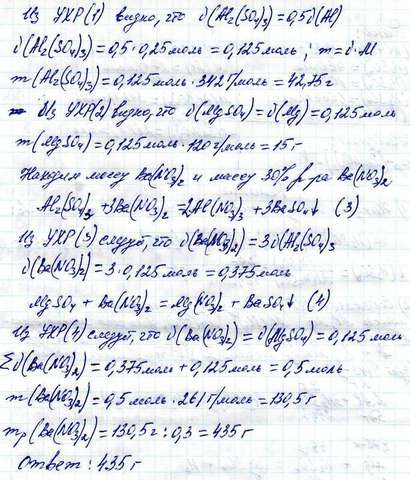 Из УХР(1) видно, что ν(Al₂(SO₄)₃) = 0,5ν(Al)
ν(Al₂(SO₄)₃) = 0,5·0,25моль = 0,125моль; m=ν·M
m(Al₂(SO₄)₃) = 0,125моль·342г/моль = 42,75г
Из УХР(2) видно, что ν(MgSO₄) = ν(Mg) = 0,125моль
m(MgSO₄) = 0,125моль·120г/моль = 15г
Находим массу Ba(NO₃)₂ и массу 30% р-ра Ba(NO₃)₂
Al₂(SO₄)₃ + 3Ba(NO₃)₂ = 2Al(NO₃)₃ + 3BaSO₄↓ (3)
Из УХР(3) следует, что ν(Ba(NO₃)₂) = 3ν(Al₂(SO₄)₃
ν(Ba(NO₃)₂) = 3·0,125моль = 0,375моль
MgSO₄ + Ba(NO₃)₂ = Mg(NO₃)₂ + BaSO₄↓ (4)
Из УХР(4) следует, что ν(Ba(NO₃)₂) = ν(MgSO₄) = 0,125моль
Σν(Ba(NO₃)₂) = 0,375моль + 0,125моль = 0,5моль
m(Ba(NO₃)₂) = 0,5моль·261г/моль = 130,5г
mр(Ba(NO₃)₂) = 130,5г : 0,3 = 435г
Ответ: 435г